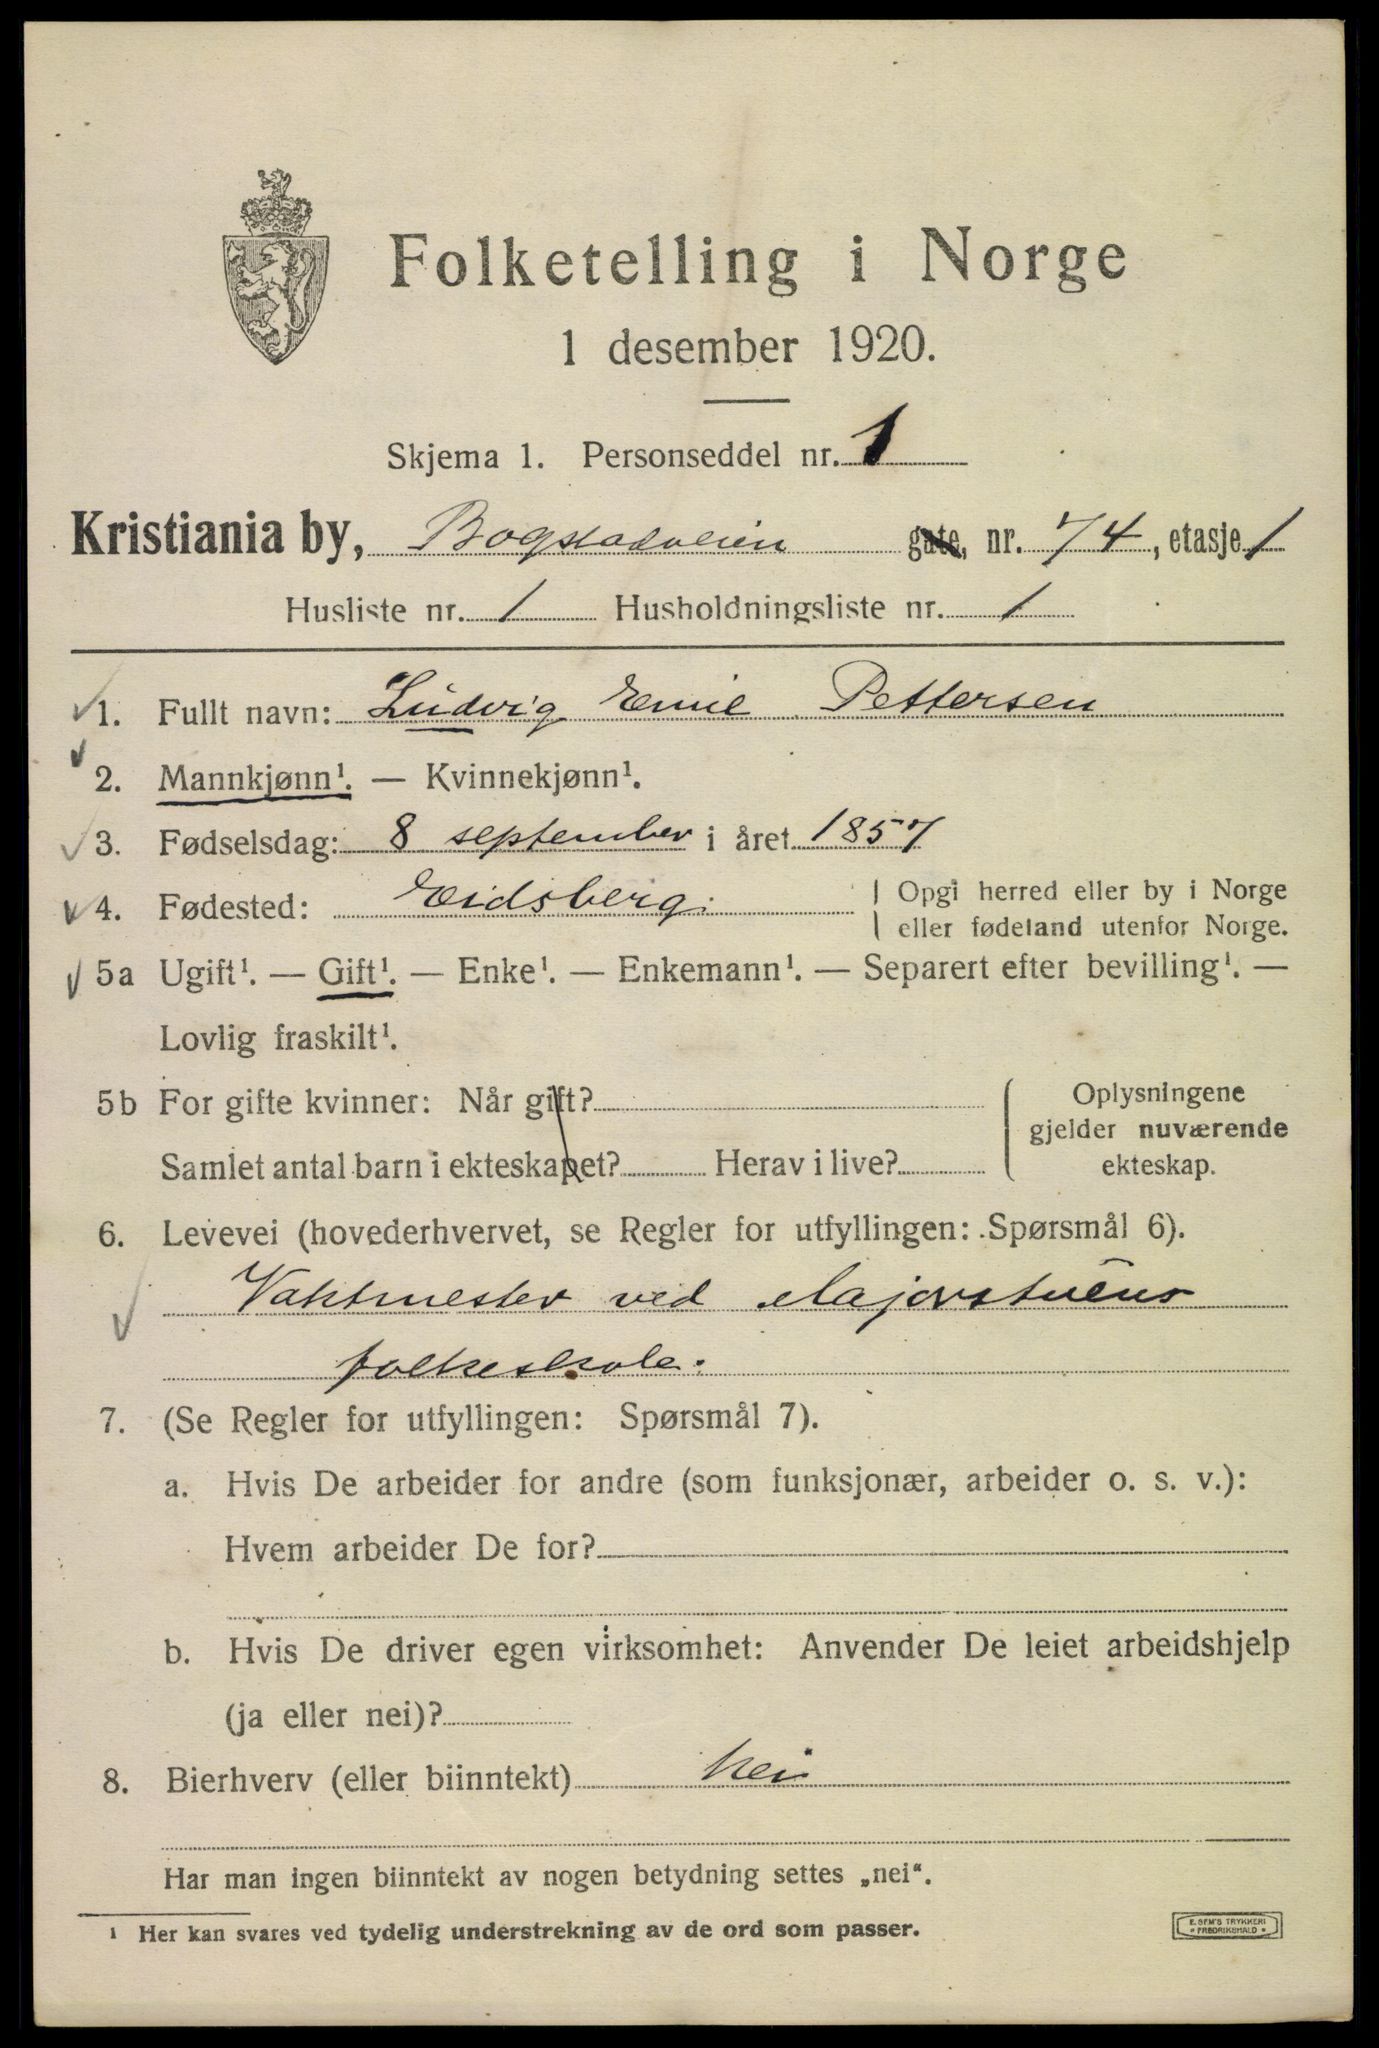 Folketelling i Norge
1 desember 1920.
Skjema 1. Personseddel nr. 1
Kristiania by, Bogstadveien gate, nr. 74, etasje 1
Husliste nr. 1 Husholdningsliste nr. 1
1. Fullt navn: Ludvig Emil Pettersen
2. Mannkjønn¹. — Kvinnekjønn¹.
3. Fødselsdag: 8 september i året 1857
4. Fødested: Eidsberg. Opgi herred eller by i Norge
eller fødeland utenfor Norge.
5a Ugift¹. — Gift¹. — Enke¹. — Enkemann¹. — Separert efter bevilling¹. —
Lovlig fraskilt¹.
5b For gifte kvinner: Når gift?
Samlet antal barn i ekteskapet? Herav i live?
Oplysningene
gjelder nuværende
ekteskap.
6. Levevei (hovederhvervet, se Regler for utfyllingen: Spørsmål 6).
Vaktmester ved Majorstuens
folkeskole.
7. (Se Regler for utfyllingen: Spørsmål 7).
a. Hvis De arbeider for andre (som funksjonær, arbeider o. s. v.):
Hvem arbeider De for?
b. Hvis De driver egen virksomhet: Anvender De leiet arbeidshjelp
(ja eller nei)?
8. Bierhverv (eller biinntekt) Nei
Har man ingen biinntekt av nogen betydning settes „nei“.
¹ Her kan svares ved tydelig understrekning av de ord som passer.
E. SEM'S TRYKKERI
* FREDRIKSHALD *